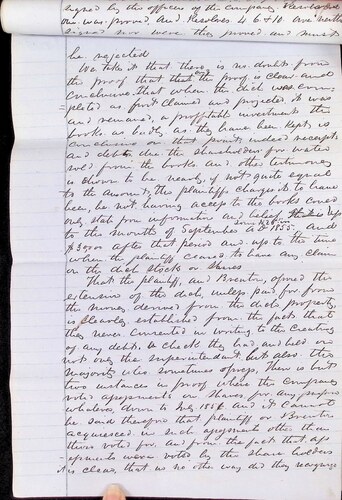 signed by the officers of the company Resolved
one was proved, and Resolves 4 6 & 10 are neither
signed nor were they proved and must
be rejected
We take it that there is no doubt from
the proof that that the proof is clear and
conclusive that when the ditch was com
pleted as first claimed and projected it was
and remained, a profitable investment the
books as badly as they have been kept is
conclusive on that point, indeed receipts
and debts due the shareholders for water
sold from the books and other testimony
is shown to be nearly, if not quite equal
to the amount, the plaintiffs charges it to have
been, he not having access to the books could
only state from information and belief up
to this months of September 1855. and
$3000 after that period and up to the time
when the plaintiff ceased to have any claim
on the ditch stocks or shares
That the plaintiff, and Brenton, oposed the
extension of the ditch, unless paid for from
the money derived from the ditch property,
is clearly established from the fact that
they never consented in writing to the creating
of any debts. A check they had and held on
not only the superintendent but also the
majority who sometimes there is but
two instances in proof where the company
voted assessments on shares for any purpose
whatever down to July 1856 and it cannot
be said therefore that plaintiff or Brenton
acquiesced in such assessments other than
those voted for, and from the fact that ass
essments were voted by the share holders
is clear, that in no other way did they